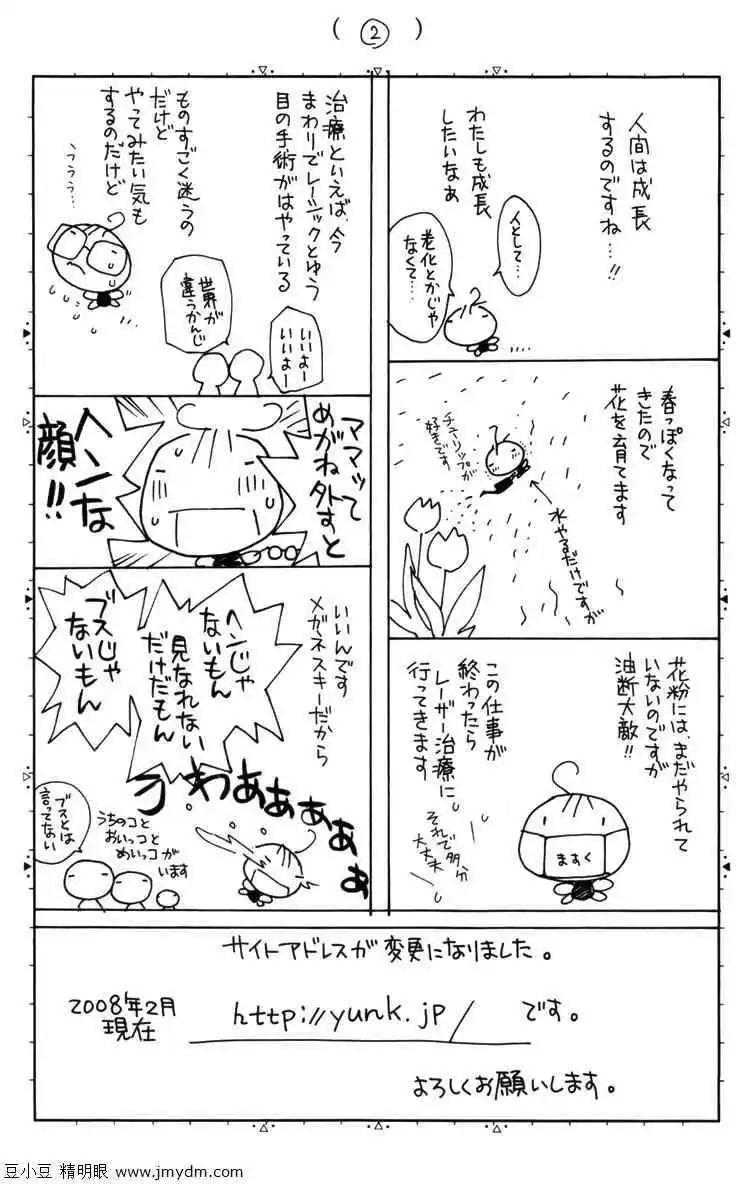 (2)
人間は成長
するのですね…!!
わたしも成長
したいなぁ
人として…
老化とかじゃ
なくて…
春っぽくなって
きたので
花を育てます
チューリップが
好きです
水やるだけですが
花粉には、まだやられて
いないのですが
油断大敵!!
この仕事が
終わったら
レーザー治療に
行ってきます
それで多分
大丈夫
ますく
治療といえば、今
まわりでレーシックとゆう
目の手術がはやっている
ものすごく迷うの
だけど
やってみたい気も
するのだけど
うぅぅ…
いいよー
いいよー
世界が
違うかんじ
ママッて
めがね外すと
ヘンな
顔!!
いいんです
メガネスキーだから
ヘンじゃ
ないもん
見なれない
だけだもん
ブスじゃ
ないもん
うわぁぁぁぁぁぁ
ブスとは
言ってない
うちのコと
おいっコと
めいっコが
います
サイトアドレスが変更になりました。
2008年2月
現在
http://yunk.jp/ です。
よろしくお願いします。
豆小豆 精明眼 www.jmydm.com